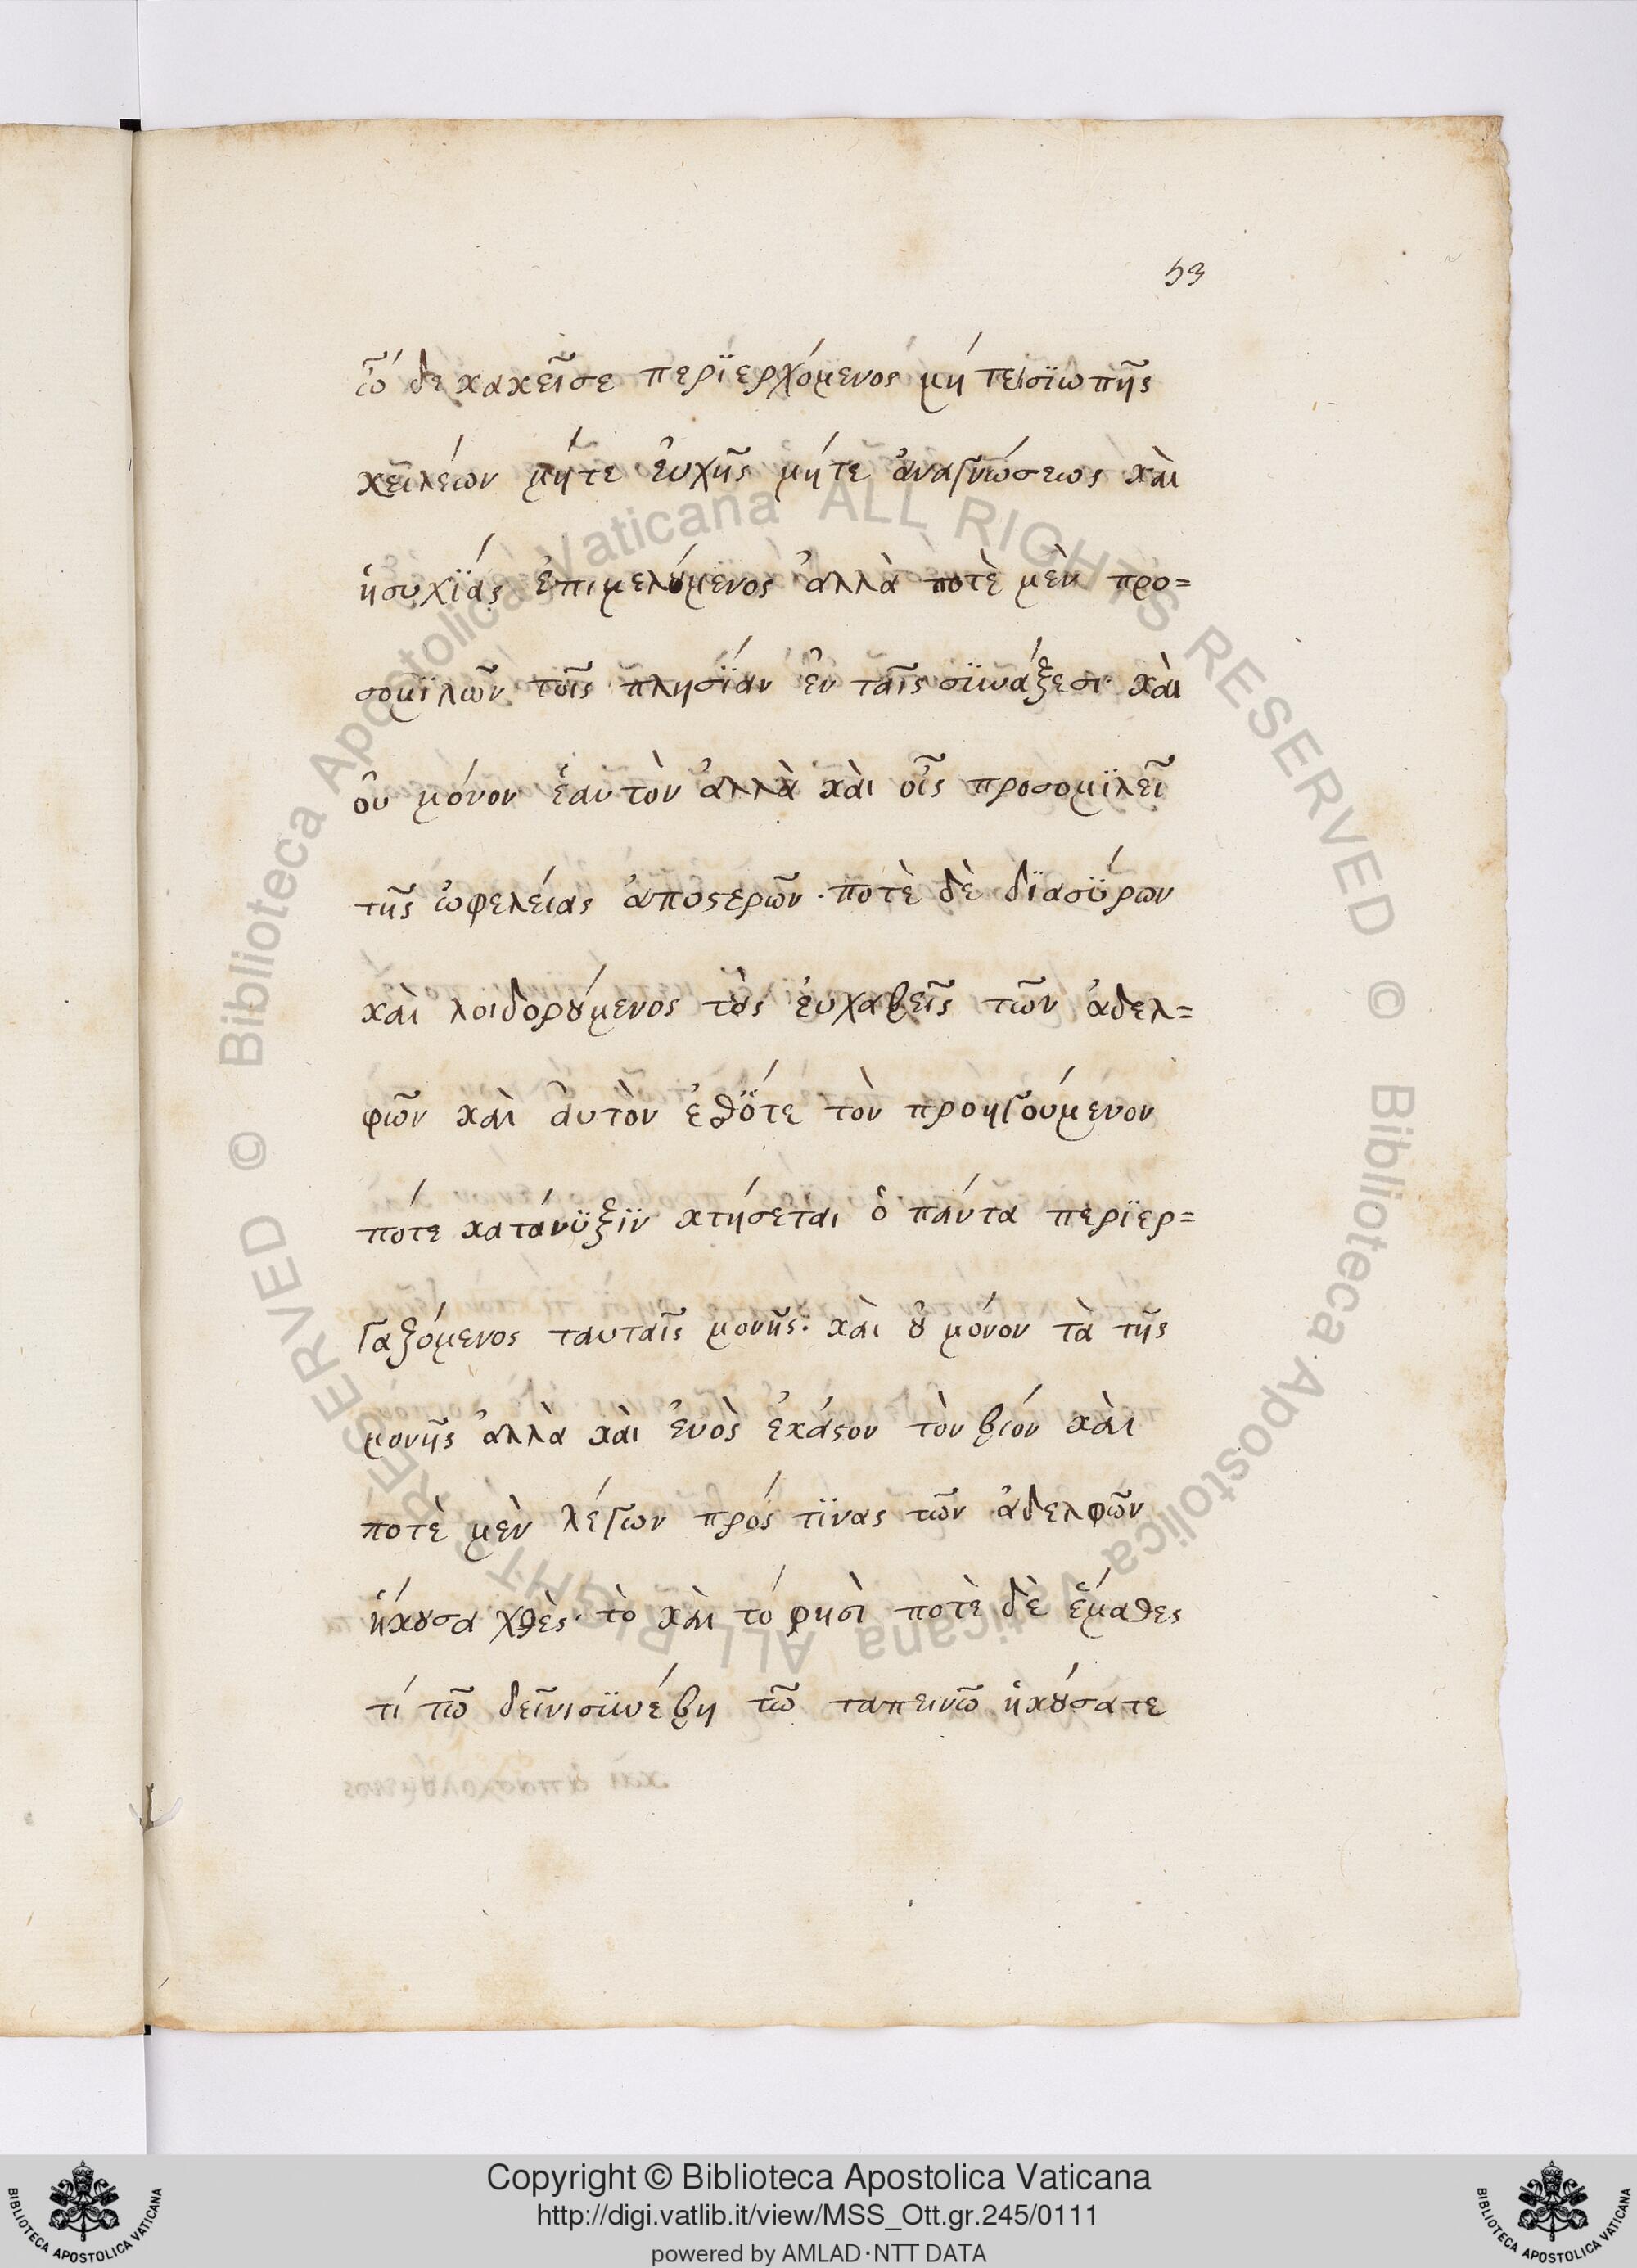 53
ὧδε κακεῖσε περϊερχόμενος μή τε σϊωπῆς
χειλέων μήτε ἐυχῆς μήτε ἀναγνώσεως κὰι
ἡσυχϊάς ἐπιμελούμενος ἀλλὰ ποτὲ μὲν προ=
σομϊλῶν τοῖς πλησϊάν ἐν ταῖς σϋνάξεσι· κὰι
οὐ μόνον ἑαυτὸν ἀλλὰ κὰι οἷς προσομϊλεῖ
τῆς ὠφελείας ἀποστερῶν· ποτὲ δὲ δϊασΰρων
κὰι λοιδορούμενος τοὺς ἐυχαβεῖς τῶν ἀδελ=
φῶν κὰι ἀυτὸν ἐθότε τὸν προηγούμενον
πότε κατάνϋξϊν κτήσεται ὁ πάντα περϊερ=
γαξόμενος ταυταῖς μονῆς· κὰι οὐ μόνον τὰ τῆς
μονῆς ἀλλὰ κὰι ἑνὸς ἑκάστου τὸν βιόν κὰι
ποτὲ μὲν λέγων πρός τϊνας τῶν ἀδελφῶν
ἤκουσα χθὲς· τὸ κὰι τό φησὶ ποτὲ δὲ ἔμαθες
τί τῶ δεῖνι σϋνέβη τῶ ταπεινῶ ἠκούσατε
Copyright © Biblioteca Apostolica Vaticana
http://digi.vatlib.it/view/MSS_Ott.gr.245/0111
powered by AMLAD·NTT DATA
BIBLIOTECA APOSTOLICA VATICANA
BIBLIOTECA APOSTOLICA VATICANA
© Biblioteca Apostolica Vaticana ALL RIGHTS RESERVED
© Biblioteca Apostolica Vaticana ALL RIGHTS RESERVED